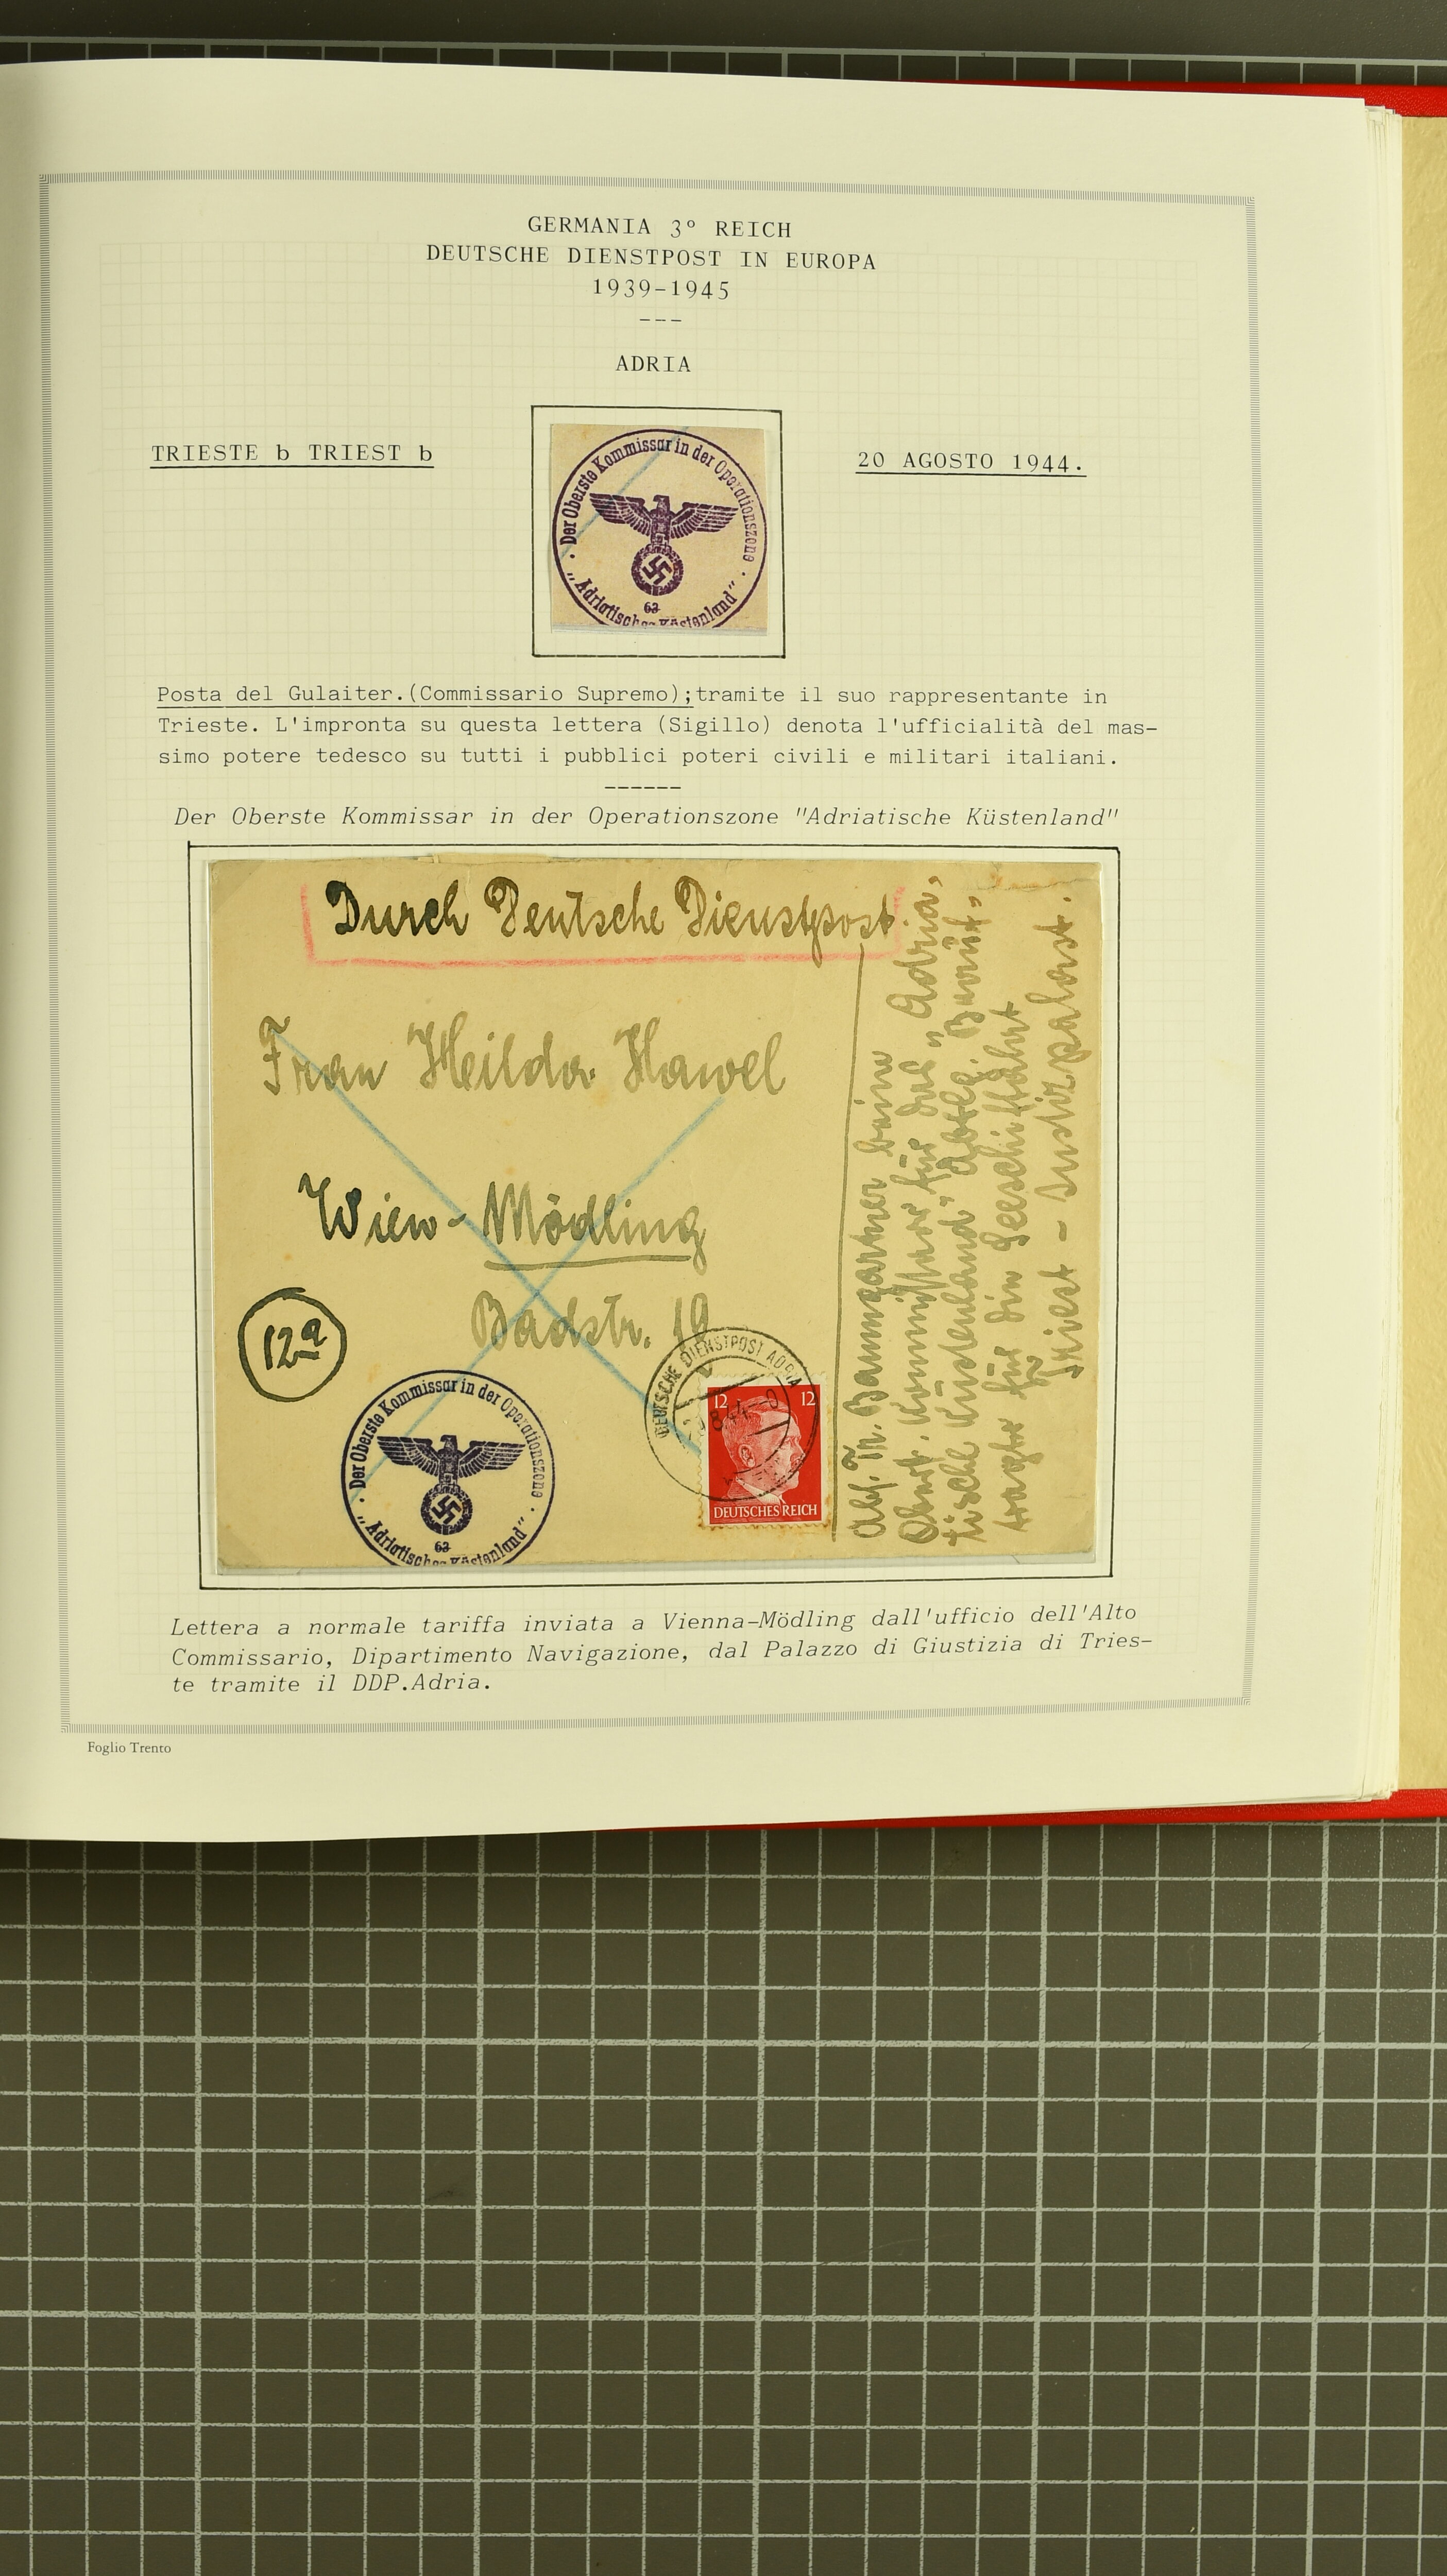 GERMANIA 3º REICH
DEUTSCHE DIENSTPOST IN EUROPA
1939-1945
---
ADRIA
TRIESTE b TRIEST b
20 AGOSTO 1944.
Der Oberste Kommissar in der Operationszone
63
"Adriatisches Küstenland"
Posta del Gulaiter.(Commissario Supremo);tramite il suo rappresentante in
Trieste. L'impronta su questa lettera (Sigillo) denota l'ufficialità del mas-
simo potere tedesco su tutti i pubblici poteri civili e militari italiani.
------
Der Oberste Kommissar in der Operationszone "Adriatische Küstenland"
Durch Deutsche Dienstpost.
Frau Heilda Hawel
Wien - Mödling
Badstr. 19
12a
Der Oberste Kommissar in der Operationszone
63
"Adriatisches Küstenland"
DEUTSCHE DIENSTPOST ADRIA
b
8.44
12 12
DEUTSCHES REICH
Abs. Fr. Baumgartner beim
Oberst. Kommissar für das "Adria-
tische Küstenland" Abtlg. Beauf-
tragter für die Seeschiffahrt
Triest - Justizpalast.
Lettera a normale tariffa inviata a Vienna-Mödling dall'ufficio dell'Alto
Commissario, Dipartimento Navigazione, dal Palazzo di Giustizia di Tries-
te tramite il DDP.Adria.
Foglio Trento